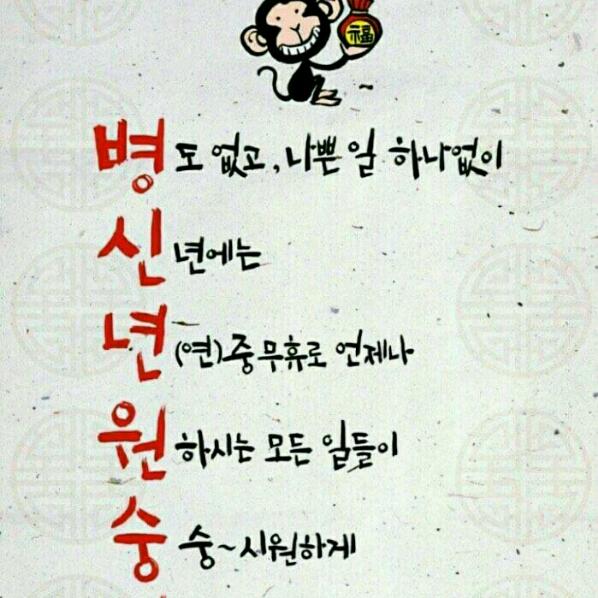 福
병도 없고, 나쁜 일 하나없이
신년에는
년(연)중무휴로 언제나
원하시는 모든 일들이
숭숭~시원하게